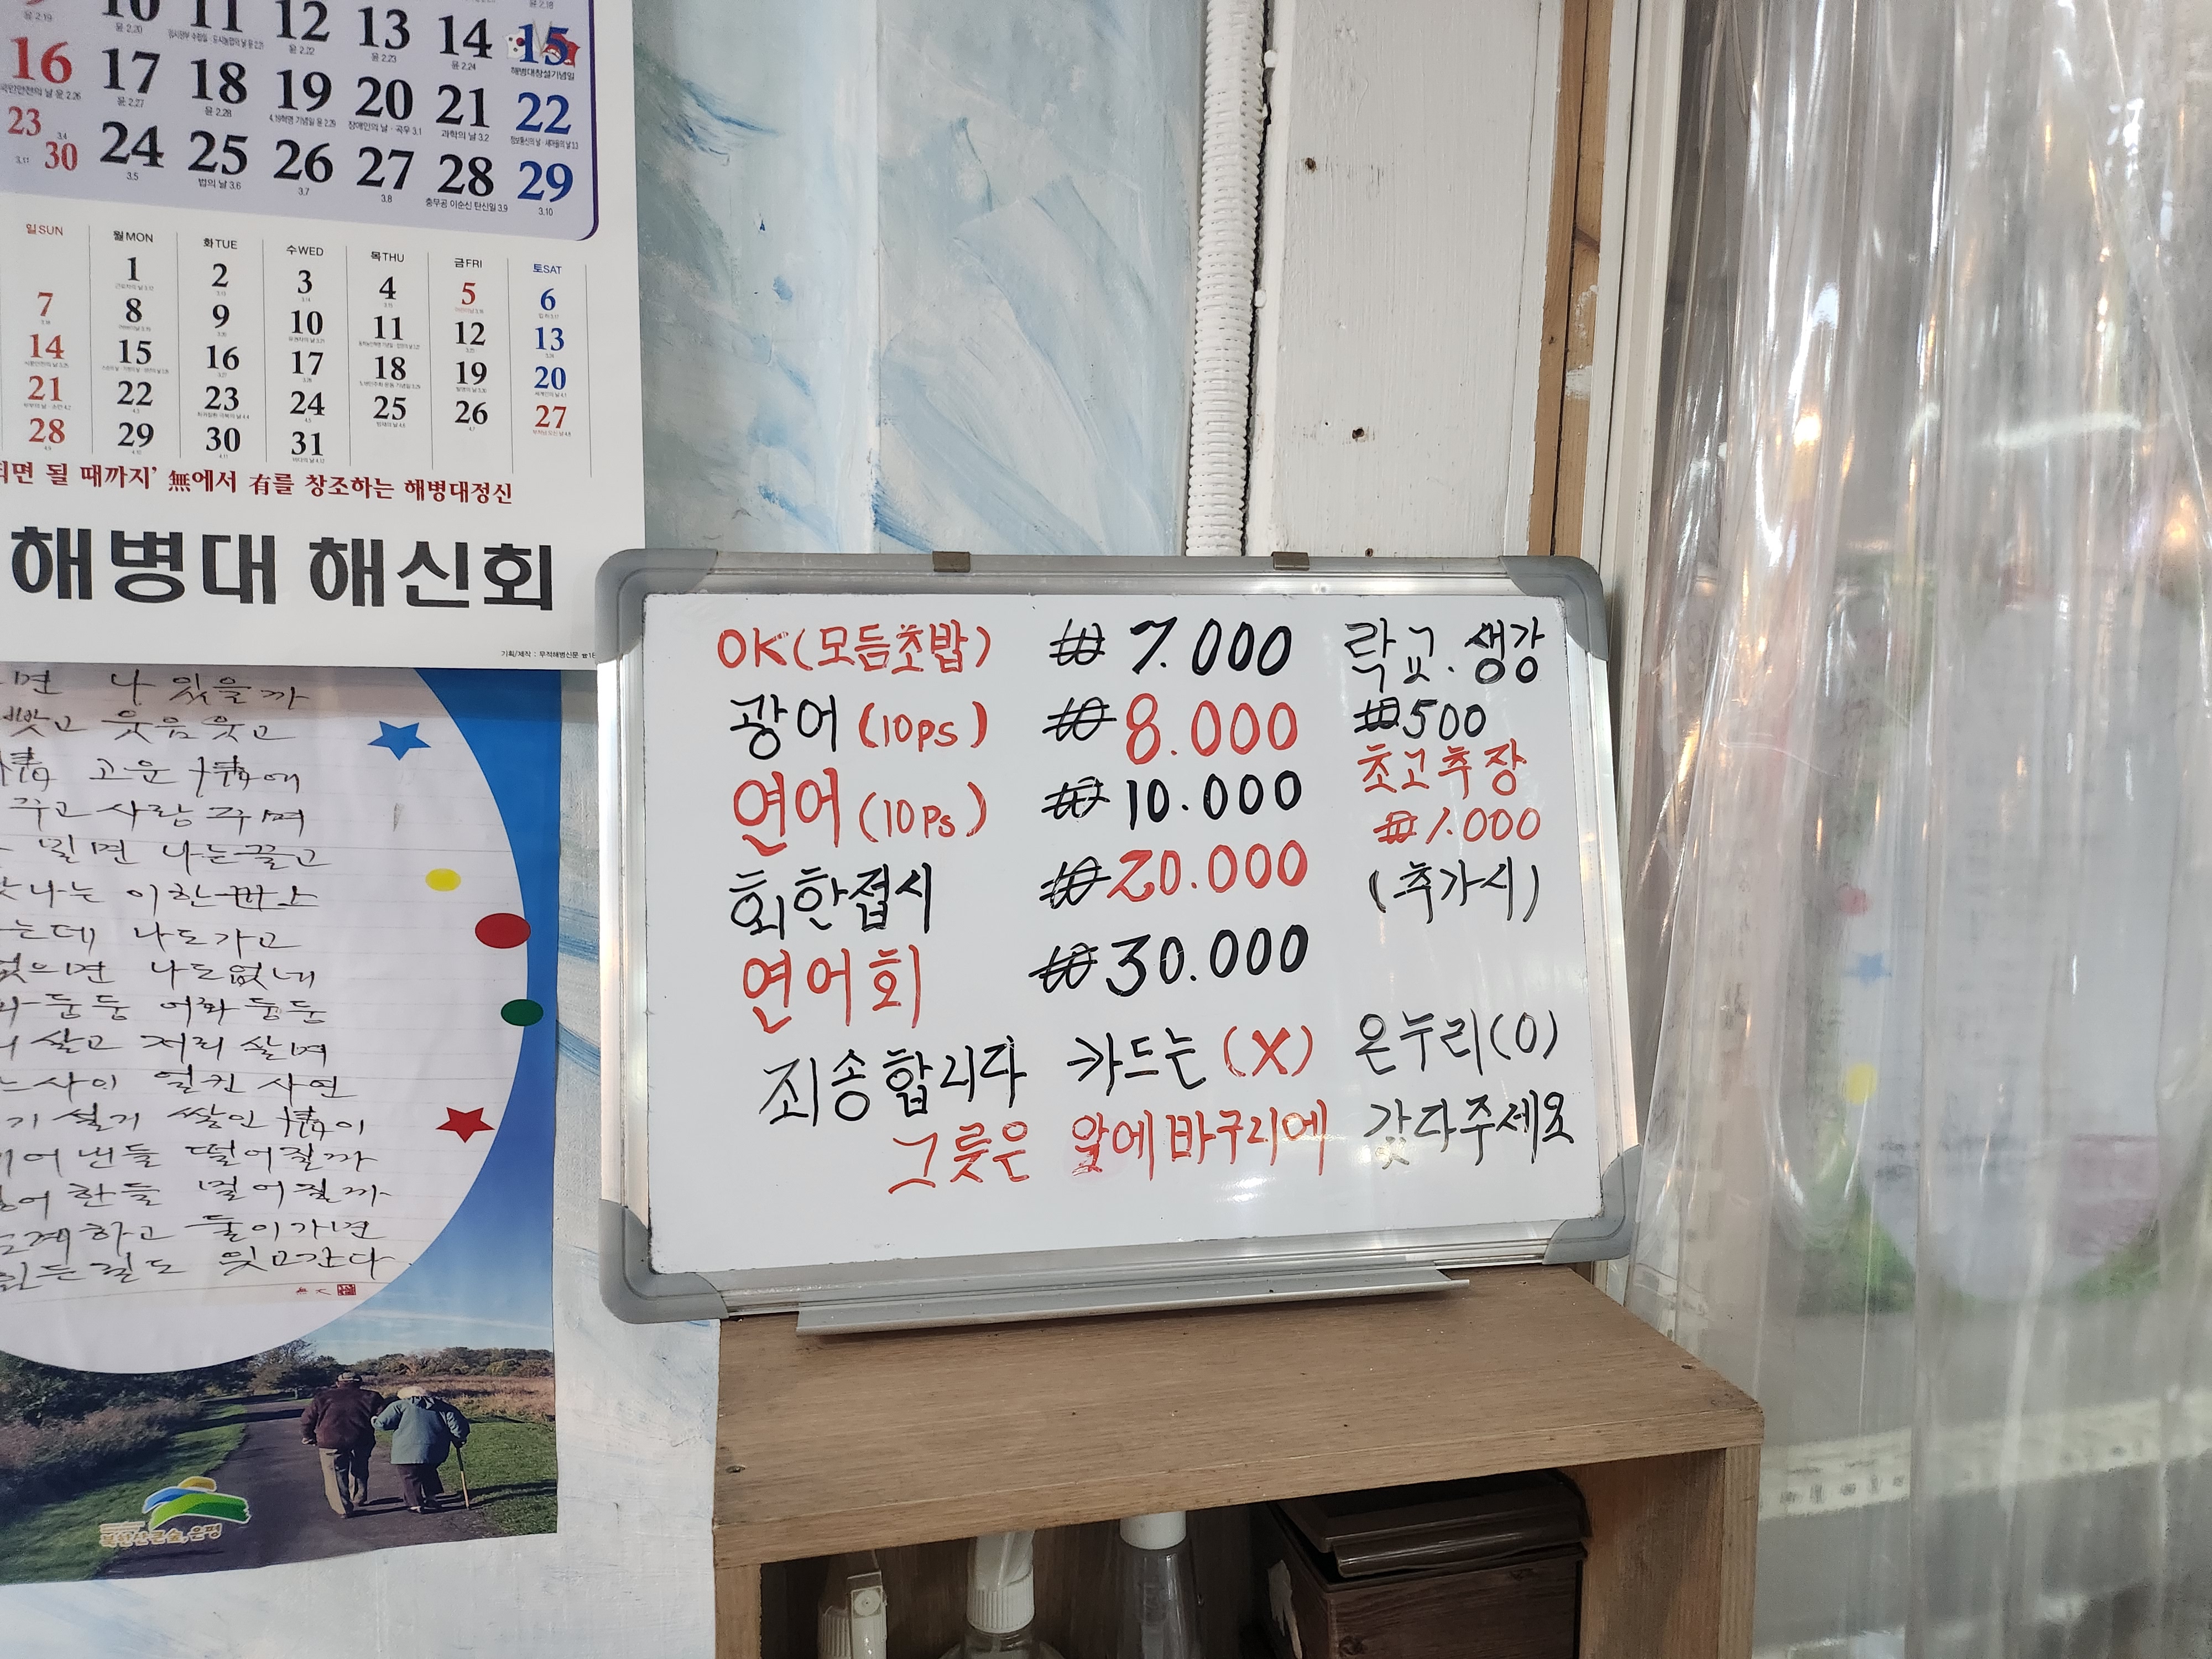 16 17 18 19 20 21 22
23 24 25 26 27 28 29
30
12 13 14 15
해병대창설기념일
과학의 날 3.2
법의 날 3.6
충무공 이순신 탄신일 3.9
일SUN 월MON 화TUE 수WED 목THU 금FRI 토SAT
1 2 3 4 5 6
7 8 9 10 11 12 13
14 15 16 17 18 19 20
21 22 23 24 25 26 27
28 29 30 31
되면 될 때까지' 無에서 有를 창조하는 해병대정신
해병대 해신회
기획/제작 : 무적해병신문
OK(모듬초밥) ₩ 7.000
광어 (10ps) ₩ 8.000
연어 (10Ps) ₩ 10.000
회한접시 ₩ 20.000
연어회 ₩ 30.000
락교. 생강
₩500
초고추장
₩1.000
(추가시)
죄송합니다 카드는 (X) 온누리(O)
그릇은 앞에바구리에 갔다주세요
면 나 있을까
웃음 웃고
고운 情에
꾸고 사랑 주며
빌면 나는 끌고
나는 이한
는데 나도 가고
없으면 나도 없네
둥둥 어화 둥둥
살고 저리 살며
사이 얼킨 사연
기 설기 쌓인 情이
어 낸들 떨어질까
어 한들 멀어질까
하고 둘이 가면
길도 웃고 간다.
북한산큰숲, 은평